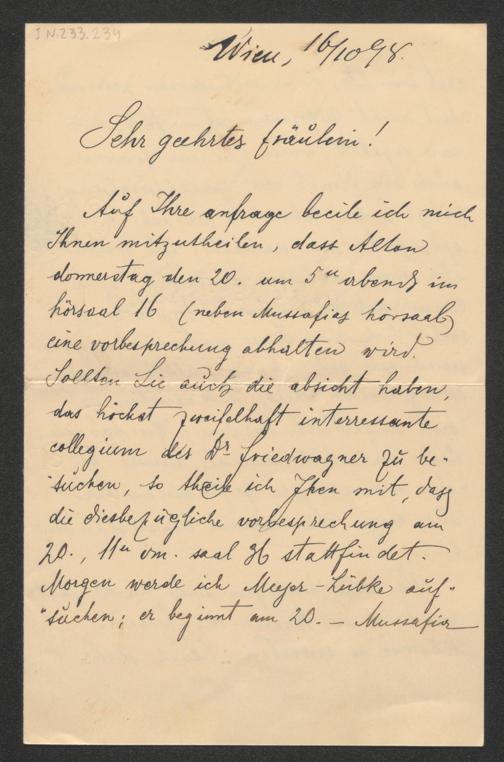 I.N.233.234
Wien, 16/10 98.
Sehr geehrtes fräulein!
Auf Ihre anfrage beeile ich mich
Ihnen mitzutheilen, dass Alton
donnerstag den 20. um 5 u abends im
hörsaal 16 (neben Mussafias hörsaal)
eine vorbesprechung abhalten wird.
Sollten Sie auch die absicht haben,
das höchst zweifelhaft interressante
collegium des Dr. Friedwagner zu be-
suchen, so theile ich Ihen mit, dass
die diesbezügliche vorbesprechung am
20., 11 u vm. saal 36 stattfindet.
Morgen werde ich Meyer-Lübke auf-
suchen; er beginnt am 20. – Mussafia